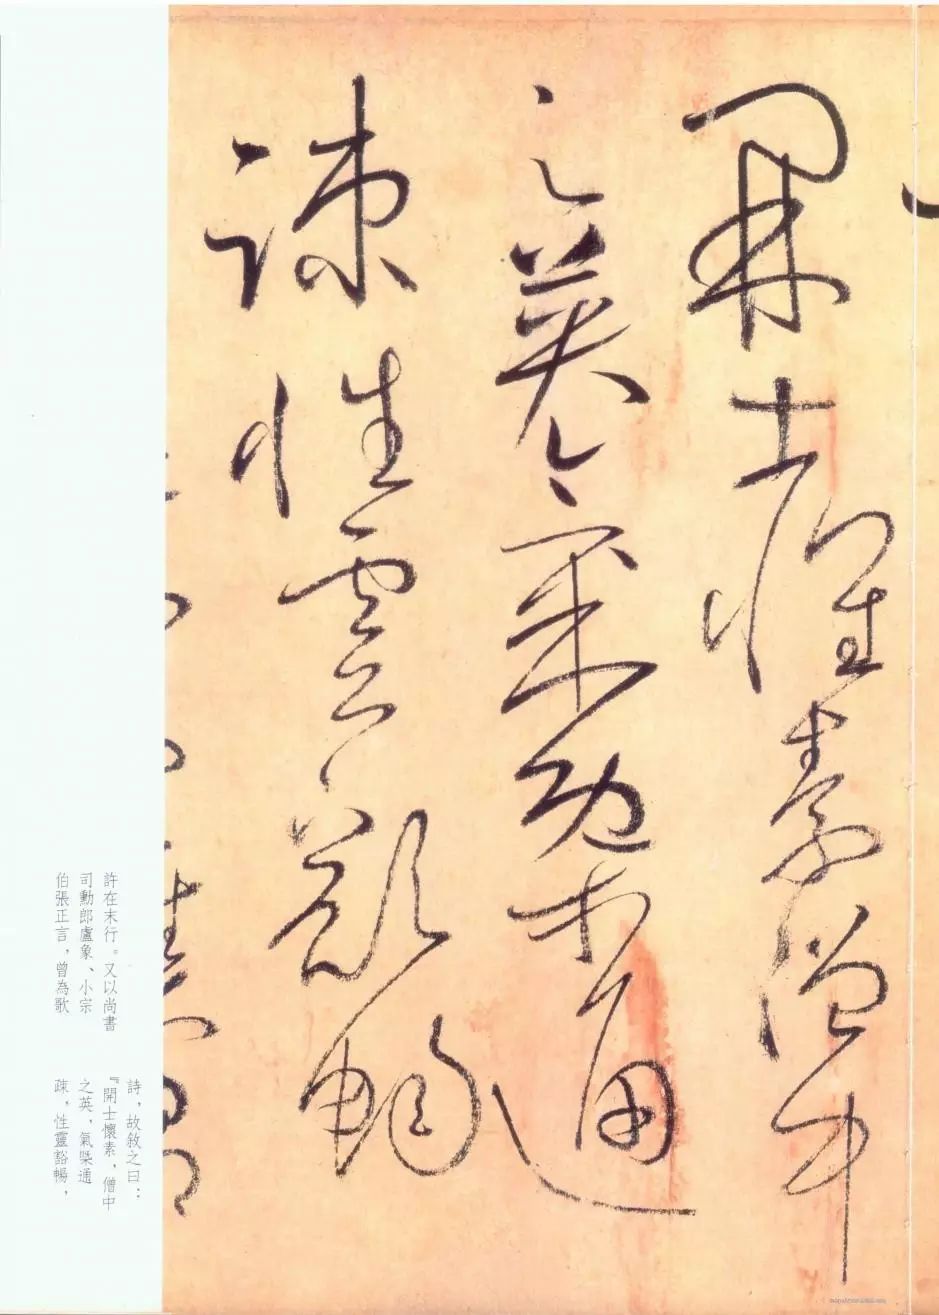 開士懷素僧中
之英氣槩通
疎性靈豁暢
許在末行。又以尚書
司勳郎盧象、小宗
伯張正言，曾為歌
詩，故敘之曰：
『開士懷素，僧中
之英，氣槩通
疎，性靈豁暢，